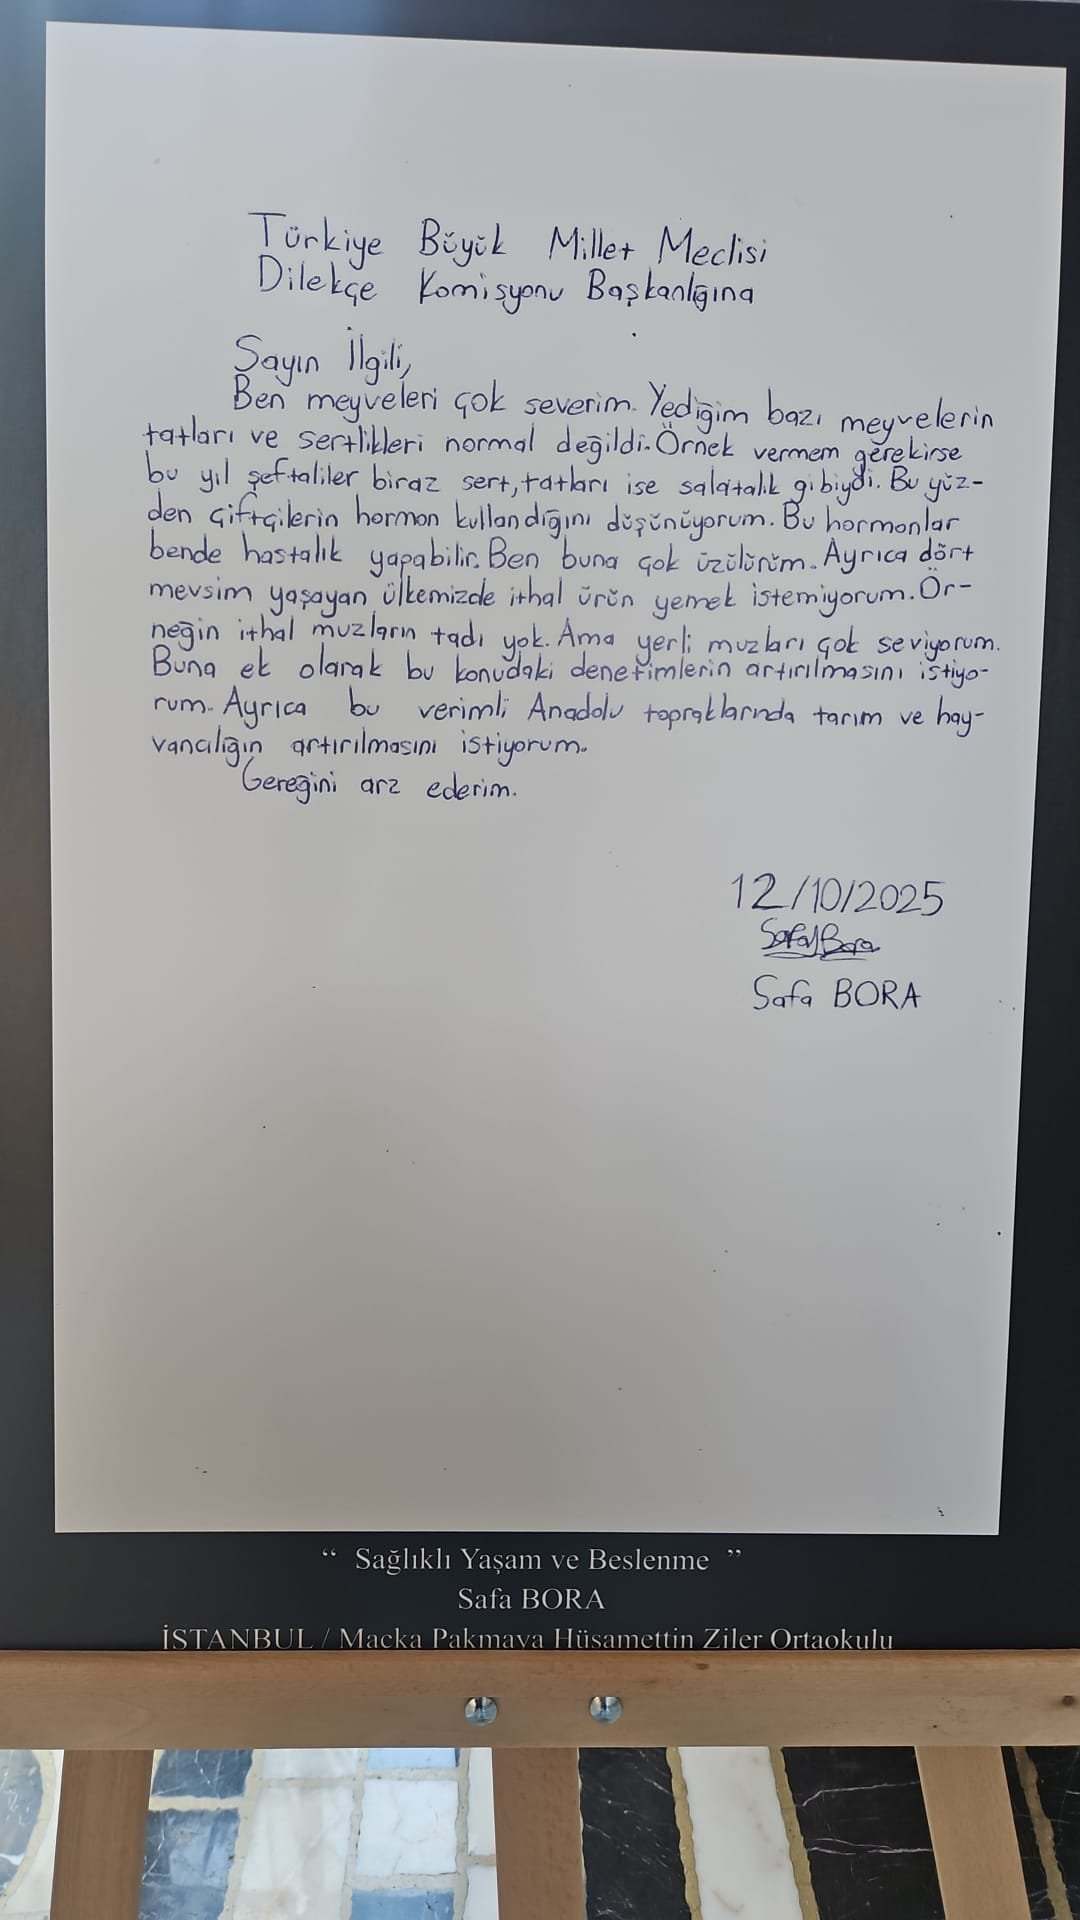 Türkiye Büyük Millet Meclisi
Dilekçe Komisyonu Başkanlığına
Sayın İlgili,
Ben meyveleri çok severim. Yediğim bazı meyvelerin
tatları ve sertlikleri normal değildi. Örnek vermem gerekirse
bu yıl şeftaliler biraz sert, tatları ise salatalık gibiydi. Bu yüz-
den çiftçilerin hormon kullandığını düşünüyorum. Bu hormonlar
bende hastalık yapabilir. Ben buna çok üzülürüm. Ayrıca dört
mevsim yaşayan ülkemizde ithal ürün yemek istemiyorum. Ör-
neğin ithal muzların tadı yok. Ama yerli muzları çok seviyorum.
Buna ek olarak bu konudaki denetimlerin artırılmasını istiyo-
rum. Ayrıca bu verimli Anadolu topraklarında tarım ve hay-
vancılığın artırılmasını istiyorum.
Gereğini arz ederim.
12/10/2025
Safa Bora
Safa BORA
“ Sağlıklı Yaşam ve Beslenme ”
Safa BORA
İSTANBUL / Maçka Pakmaya Hüsamettin Ziler Ortaokulu